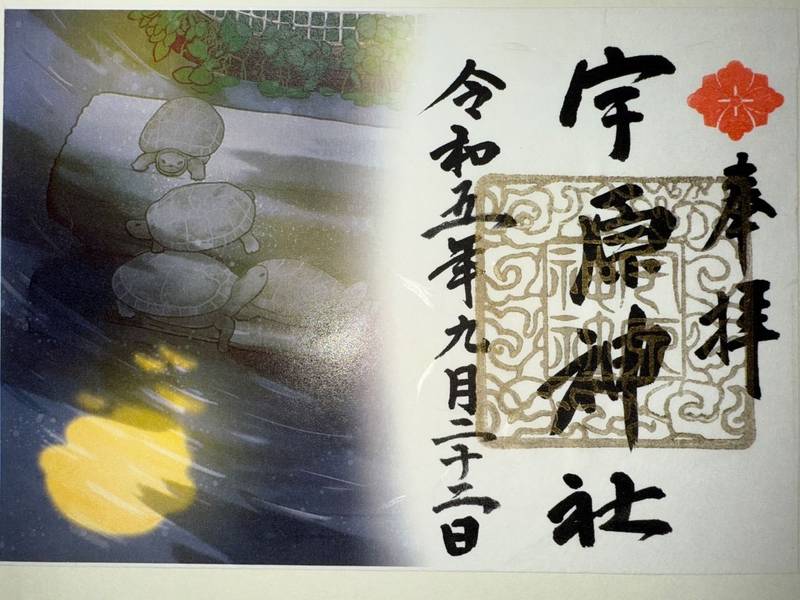 奉拝
宇原神社
令和五年九月二十二日